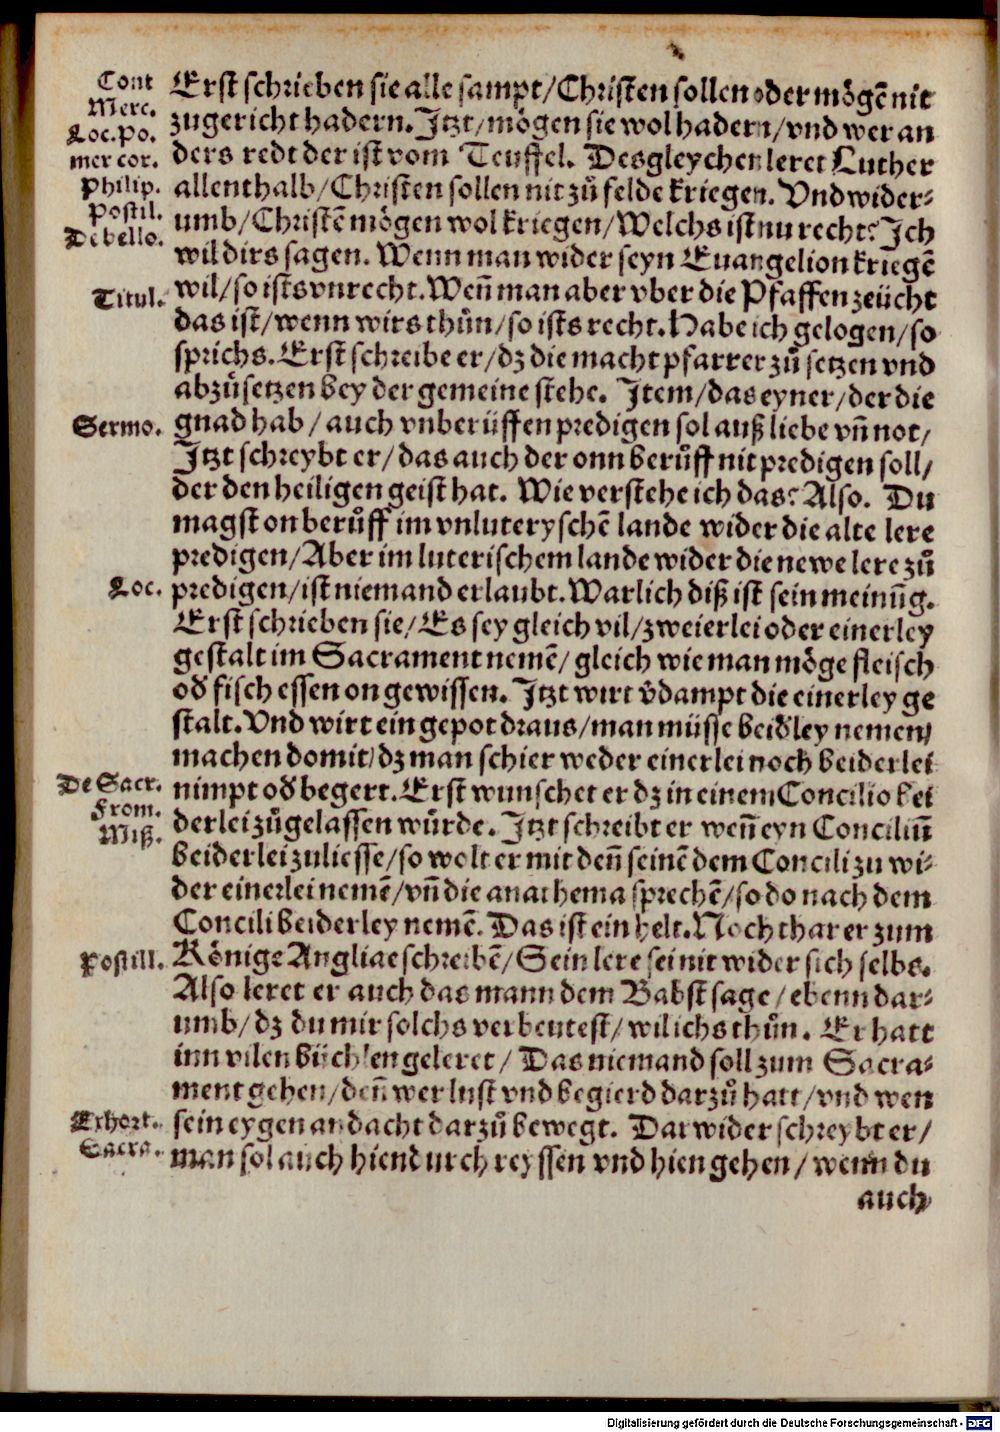 Cont
Merc.
Loc. Po.
mer cor.
Philip.
Postil.
De bello.
Titul.
Sermo.
Loc.
De Sacr.
From.
Miß.
Postill.
Exhort.
Sacra.
Erst schrieben sie alle sampt/Christen sollen oder mögẽ nit
zu gericht hadern. Jtzt/mögen sie wol hadern/vnd wer an
ders redt der ist vom Teuffel. Desgleychen leret Luther
allenthalb/Christen sollen nit zů felde kriegen. Vnd wider-
umb/Christẽ mögen wol kriegen/Welchs ist nu recht? Jch
wil dirs sagen. Wenn man wider seyn Euangelion kriegẽ
wil/so ists vnrecht. Weñ man aber vber die Pfaffen zeücht
das ist/wenn wirs thůn/so ists recht. Habe ich gelogen/so
sprichs. Erst schreibe er/dz die macht pfarrer zů setzen vnd
abzůsetzen bey der gemeine stehe. Jtem/das eyner/der die
gnad hab/auch vnberüffen predigen sol auß liebe vñ not/
Jtzt schreybt er/das auch der onn berůff nit predigen soll/
der den heiligen geist hat. Wie verstehe ich das? Also. Du
magst on berůff im vnluteryschẽ lande wider die alte lere
predigen/Aber im luterischem lande wider die newe lere zů
predigen/ist niemand erlaubt. Warlich diß ist sein meinũg.
Erst schrieben sie/Es sey gleich vil/zweierlei oder einerley
gestalt im Sacrament nemẽ/gleich wie man möge fleisch
oď fisch essen on gewissen. Jtzt wirt v̊dampt die einerley ge
stalt. Vnd wirt ein gepot draus/man müsse beiďley nemen/
machen domit/dz man schier weder einerlei noch beiderlei
nimpt oď begert. Erst wunschet er dz in einem Concilio bei
derlei zůgelassen würde. Jtzt schreibt er weñ eyn Conciliũ
beiderlei zuliesse/so wolt er mit deñ seinẽ dem Concili zu wi-
der einerlei nemẽ/vñ die anathema sprechẽ/so do nach dem
Concili beiderley nemẽ. Das ist ein helt. Noch thar er zum
Könige Angliae schreibẽ/Sein lere sei nit wider sich selbs.
Also leret er auch das mann dem Babst sage/ebenn dar-
umb/dz du mir solchs verbeutest/wil ichs thůn. Er hatt
inn vilen büchlen geleret/Das niemand soll zum Sacra-
ment gehen/deñ wer lust vnd begierd darzů hatt/vnd wen
sein eygen andacht darzů bewegt. Darwider schreybt er/
man sol auch hiendurch reyssen vnd hien gehen/wenn du
auch
Digitalisierung gefördert durch die Deutsche Forschungsgemeinschaft - DFG